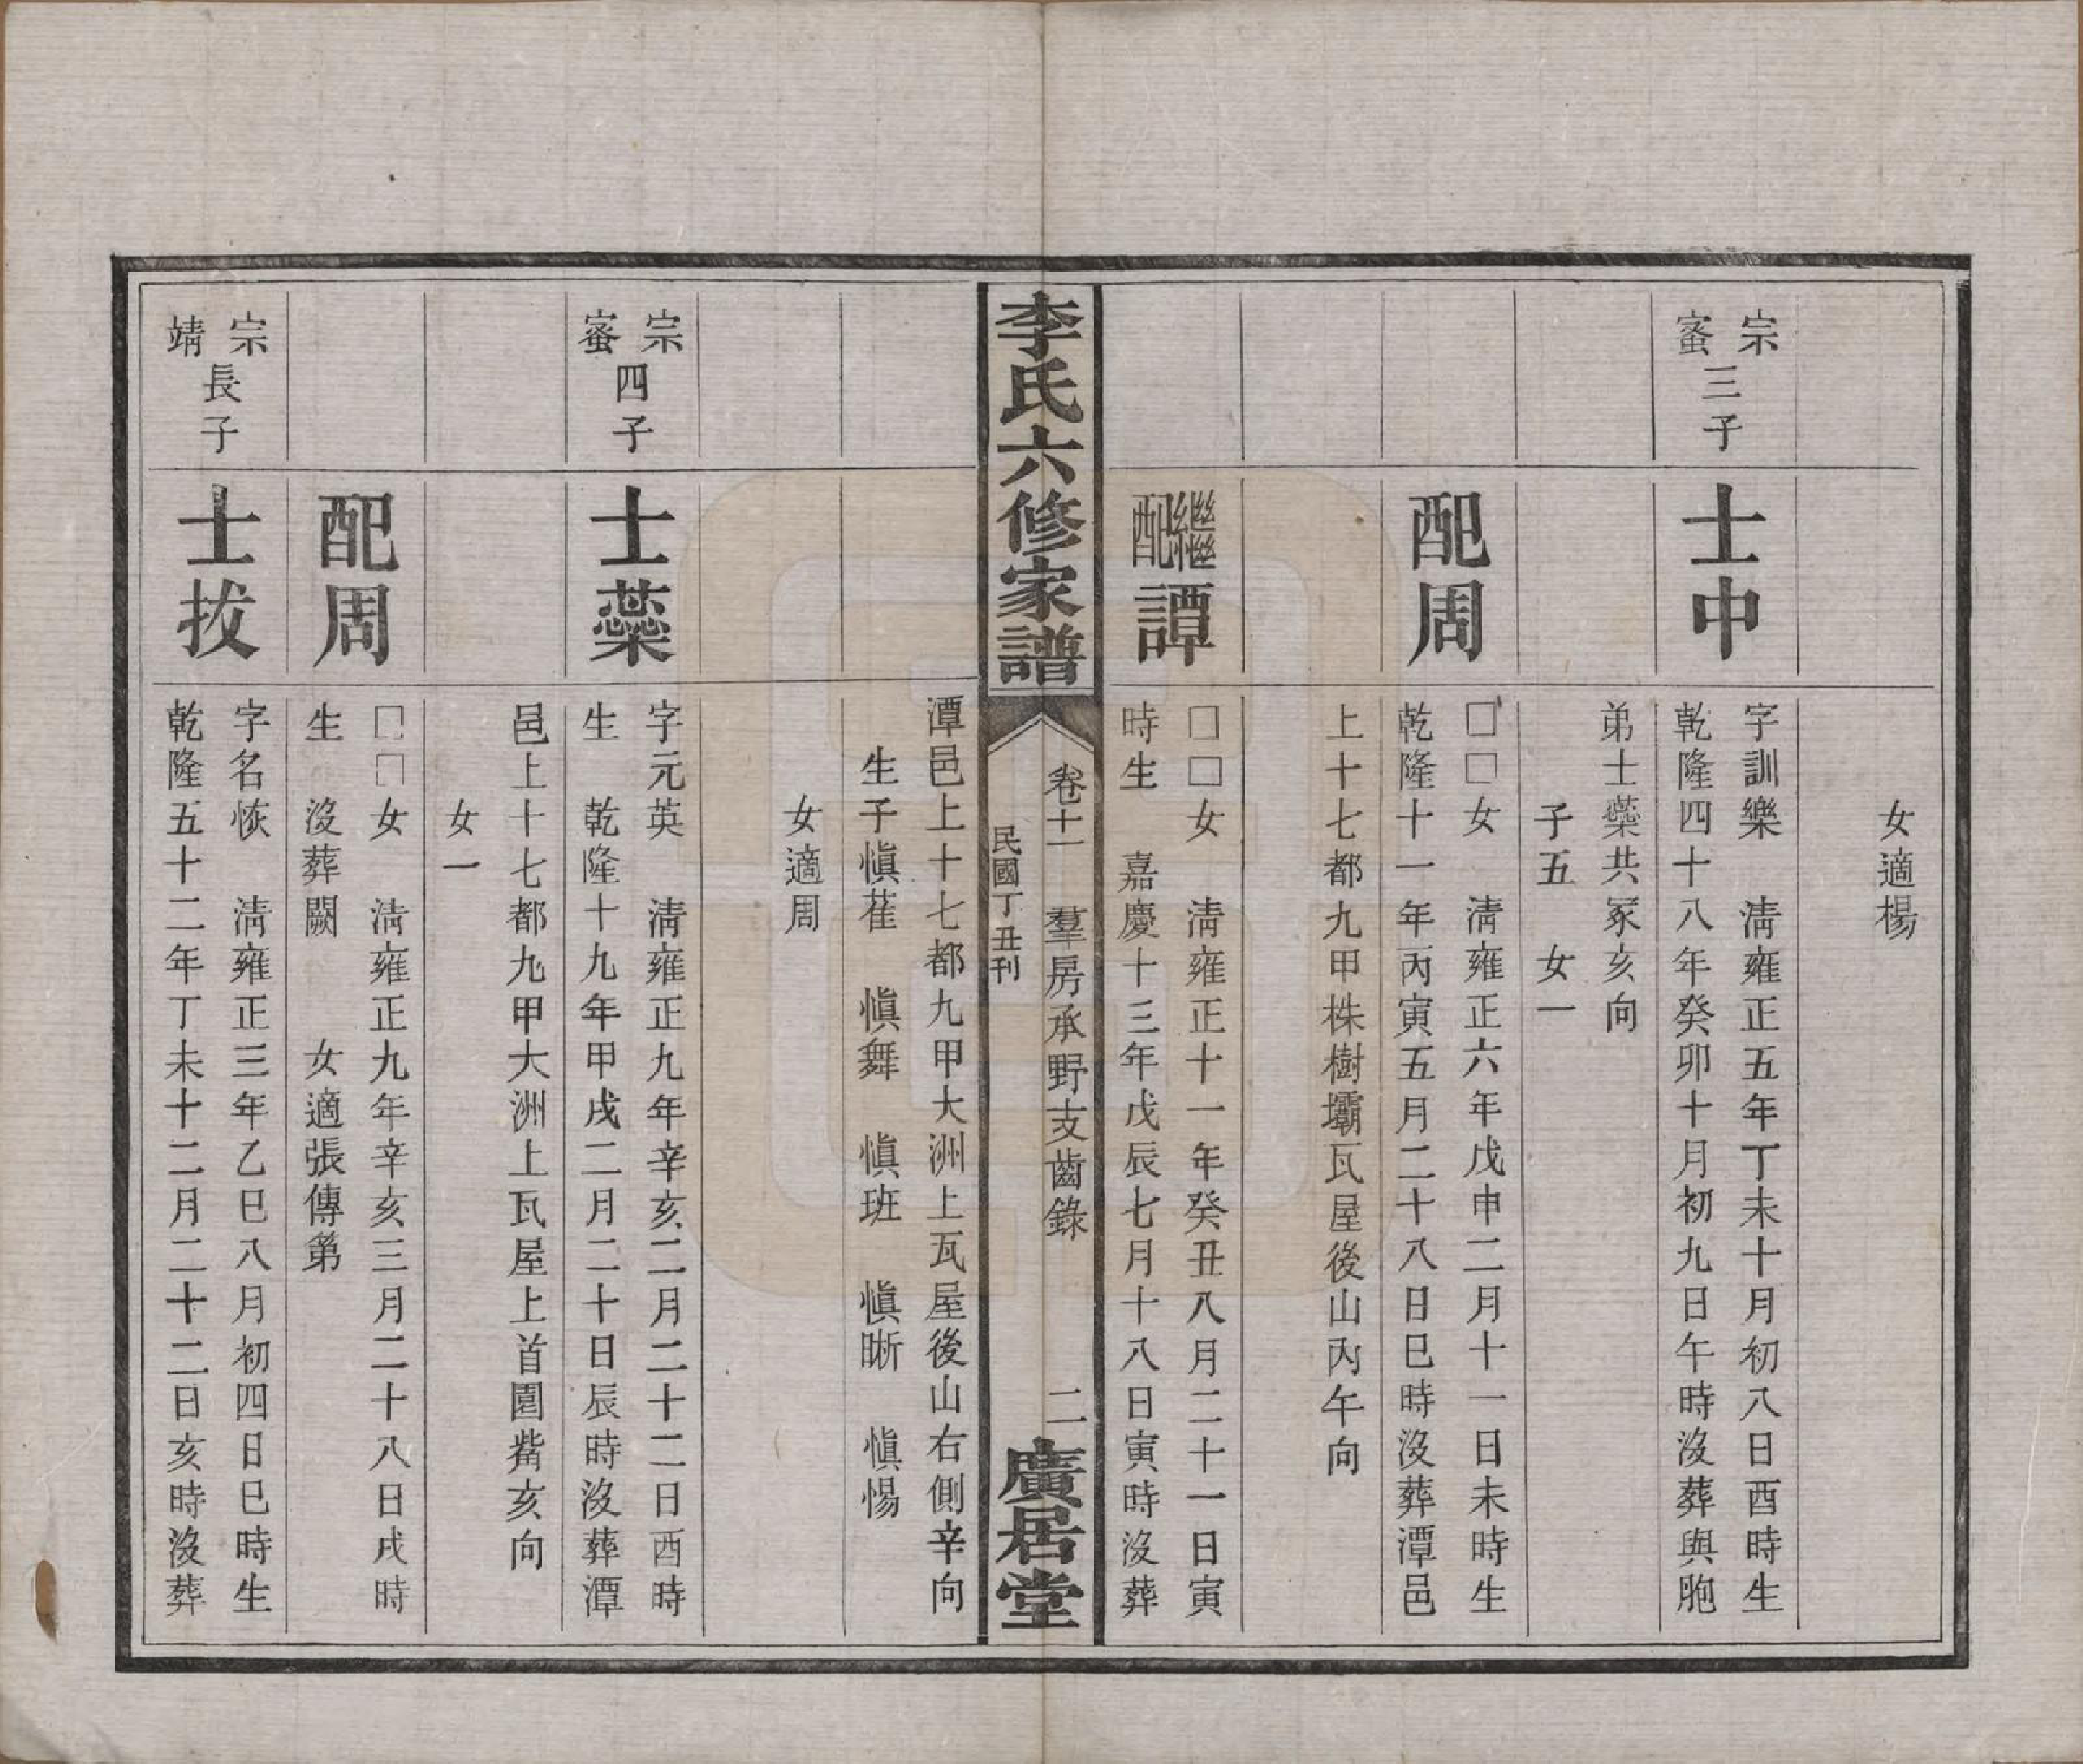 女適楊
宗蜜三子
士中
字訓樂　淸雍正五年丁未十月初八日酉時生
乾隆四十八年癸卯十月初九日午時沒葬與胞
弟士蘂共冢亥向
子五　女一
配周
□□女　淸雍正六年戊申二月十一日未時生
乾隆十一年丙寅五月二十八日巳時沒葬潭邑
上十七都九甲株樹壩瓦屋後山丙午向
繼配譚
□□女　淸雍正十一年癸丑八月二十一日寅
時生　嘉慶十三年戊辰七月十八日寅時沒葬
李氏六修家譜
卷十一　羣房承野支齒錄　二
民國丁丑刊
廣居堂
潭邑上十七都九甲大洲上瓦屋後山右側辛向
生子愼萑　愼舞　愼班　愼晣　愼惕
女適周
宗蜜四子
士蘂
字元英　淸雍正九年辛亥二月二十二日酉時
生　乾隆十九年甲戌二月二十日辰時沒葬潭
邑上十七都九甲大洲上瓦屋上首園觜亥向
女一
配周
□□女　淸雍正九年辛亥三月二十八日戌時
生　沒葬闕　女適張傳第
宗靖長子
士拔
字名恢　淸雍正三年乙巳八月初四日巳時生
乾隆五十二年丁未十二月二十二日亥時沒葬